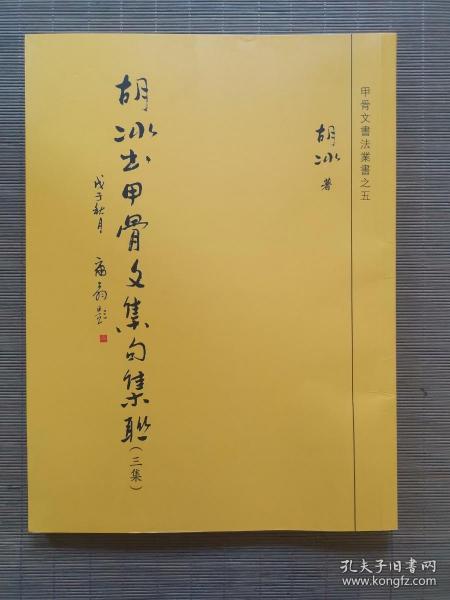 甲骨文書法業書之五
胡冰 著
胡冰书甲骨文集句集联
(三集)
戊子秋月
孔夫子旧书网
www.kongfz.com